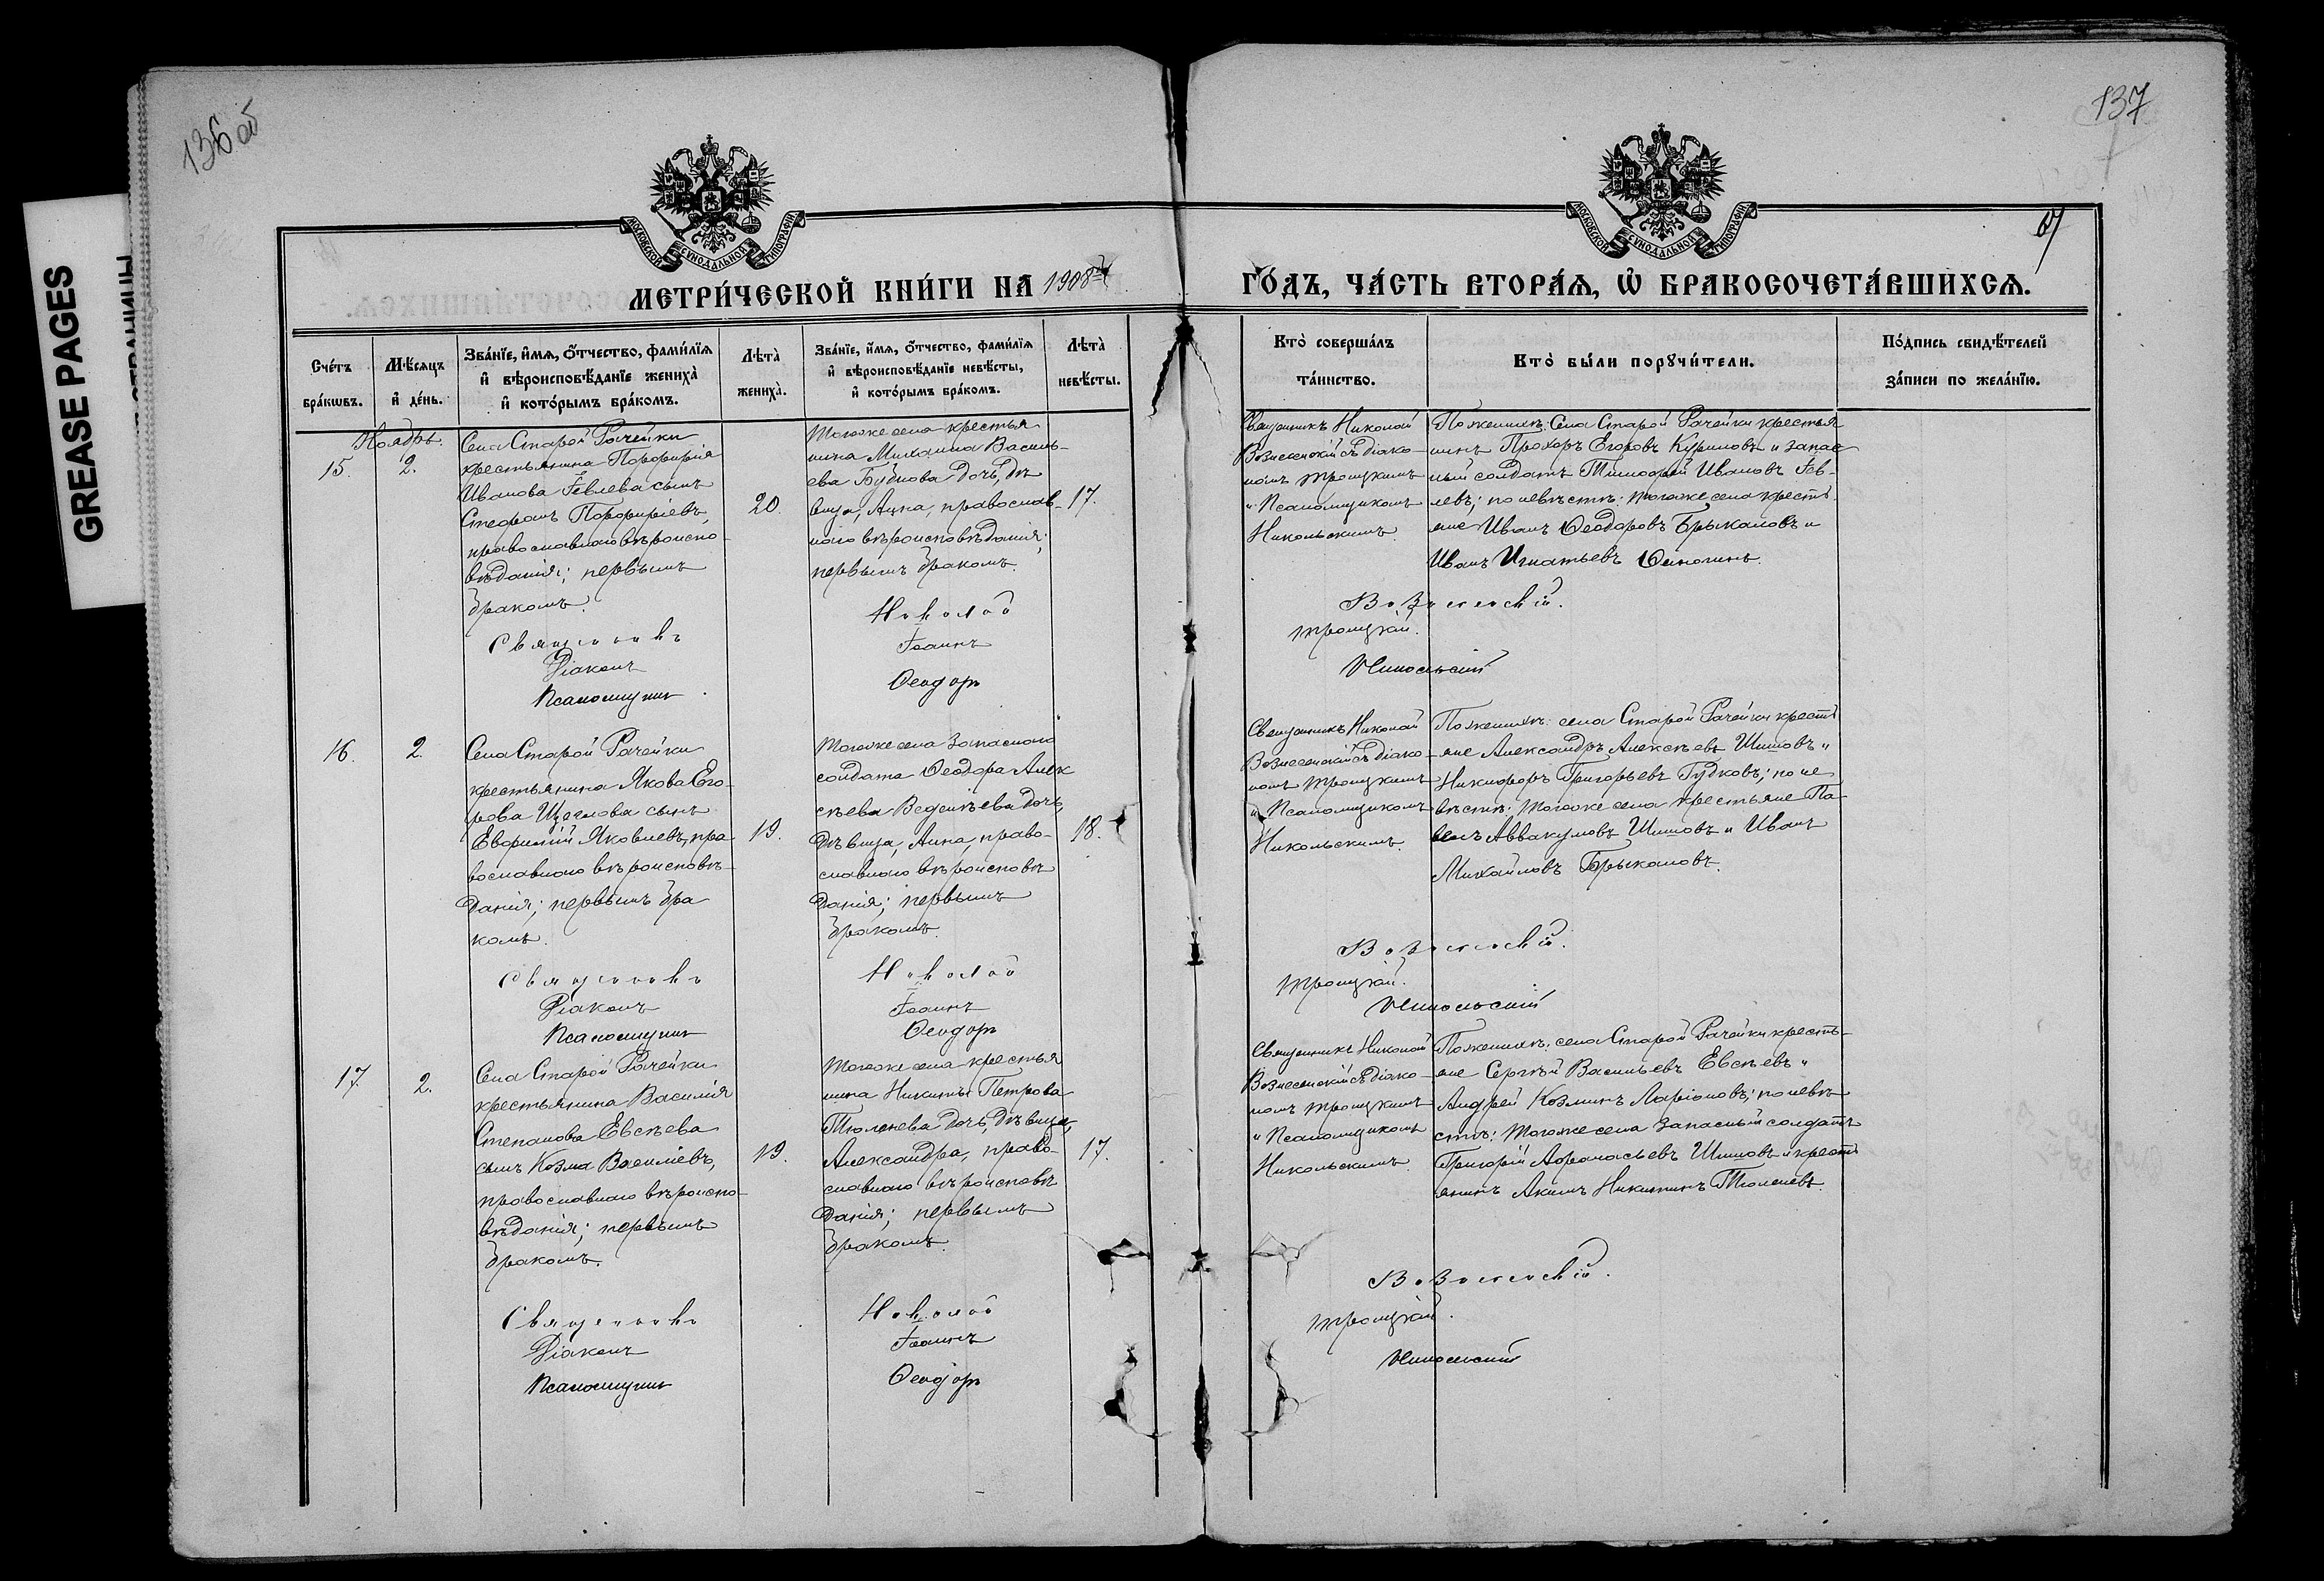 136 об
137
GREASE PAGES
МОСКОВСКОЙ СѴНОДАЛЬНОЙ ТИПОГРАФІИ
МОСКОВСКОЙ СѴНОДАЛЬНОЙ ТИПОГРАФІИ
МЕТРИ́ЧЕСКОЙ КНИ́ГИ НА 1908й
ГО́ДЪ, ЧА́СТЬ ВТОРА́Ѧ, Ѽ БРАКОСОЧЕТА́ВШИХСѦ.
Сче́тъ
бра́кѡвъ.
Мѣ́сяцъ
и де́нь.
Зва́нїе, и́мѧ, о́тчество, фами́лїѧ
и вѣроисповѣ́данїе жениха̀
и кото́рымъ бра́комъ.
Лѣта̀
жениха̀.
Зва́нїе, и́мѧ, о́тчество, фами́лїѧ
и вѣроисповѣ́данїе невѣ́сты,
и кото́рымъ бра́комъ.
Лѣта̀
невѣ́сты.
Кто̀ соверша́лъ
та́инство.
Кто̀ бы́ли порꙋчи́тели.
По́дпись свидѣ́телей
за́писи по жела́нїю.
Ноябрь.
15.
2.
Села Старой Рачейки
крестьянина Порфирія
Иванова Іевлева сынъ
Стефанъ Порфиріевъ,
православнаго вѣроиспо-
вѣданія; первымъ
бракомъ.
20.
Тогоже села крестья
нина Михаила Василь-
ева Буднова дочь, дѣ
вица, Анна, православ-
наго вѣроисповѣданія;
первымъ бракомъ.
17.
Священникъ Николай
Вознесенскій съ діако-
номъ Троицкимъ
и Псаломщикомъ
Никольскимъ.
По женихѣ: Села Старой Рачейки крестья
нинъ Прохоръ Егоровъ Куриловъ и запас
ный солдатъ Тимофей Ивановъ Іев-
левъ; по невѣстѣ: тогоже села крестъ
яне Иванъ Ѳеодоровъ Брыкановъ и
Иванъ Игнатьевъ
Священникъ Николай Вознесенскій.
Діаконъ Іоаннъ Троицкій.
Псаломщикъ Ѳеодоръ Никольскій
16.
2.
Села Старой Рачейки
крестьянина Якова Его-
рова Щеглова сынъ
Евфимій Яковлевъ, пра-
вославнаго вѣроисповѣ-
данія; первымъ бра
комъ.
19.
Тогоже села запаснаго
солдата Ѳеодора Алек
сѣева Веденѣева дочь,
дѣвица, Анна, право-
славнаго вѣроисповѣ
данія; первымъ
бракомъ.
18.
Священникъ Николай
Вознесенскій съ діако-
номъ Троицкимъ
и Псаломщикомъ
Никольскимъ.
По женихѣ: села Старой Рачейки крестъ
яне Александръ Алексѣевъ Шишовъ и
Никифоръ Григорьевъ Гудковъ; по не
вѣстѣ: тогоже села крестьяне Па-
велъ Аввакумовъ Шишовъ и Иванъ
Михайловъ Брыкановъ.
Священникъ Николай Вознесенскій.
Діаконъ Іоаннъ Троицкій.
Псаломщикъ Ѳеодоръ Никольскій
17.
2.
Села Старой Рачейки
крестьянина Василія
Степанова Евсѣева
сынъ Козма Василіевъ,
православнаго вѣроиспо-
вѣданія; первымъ
бракомъ.
19.
Тогоже села крестья
нина Никиты Петрова
Тюленева дочь, дѣвица,
Александра, право-
славнаго вѣроисповѣ
данія; первымъ
бракомъ.
17.
Священникъ Николай
Вознесенскій съ діако-
номъ Троицкимъ
и Псаломщикомъ
Никольскимъ.
По женихѣ: села Старой Рачейки кресть-
яне Сергѣй Васильевъ Евсѣевъ и
Андрей Козминъ Ларіоновъ; по невѣ
стѣ: тогоже села запасный солдатъ
Григорій Афанасьевъ Шишовъ и крестъ
янинъ Акимъ Никитинъ Тюленевъ.
Священникъ Николай Вознесенскій.
Діаконъ Іоаннъ Троицкій.
Псаломщикъ Ѳеодоръ Никольскій